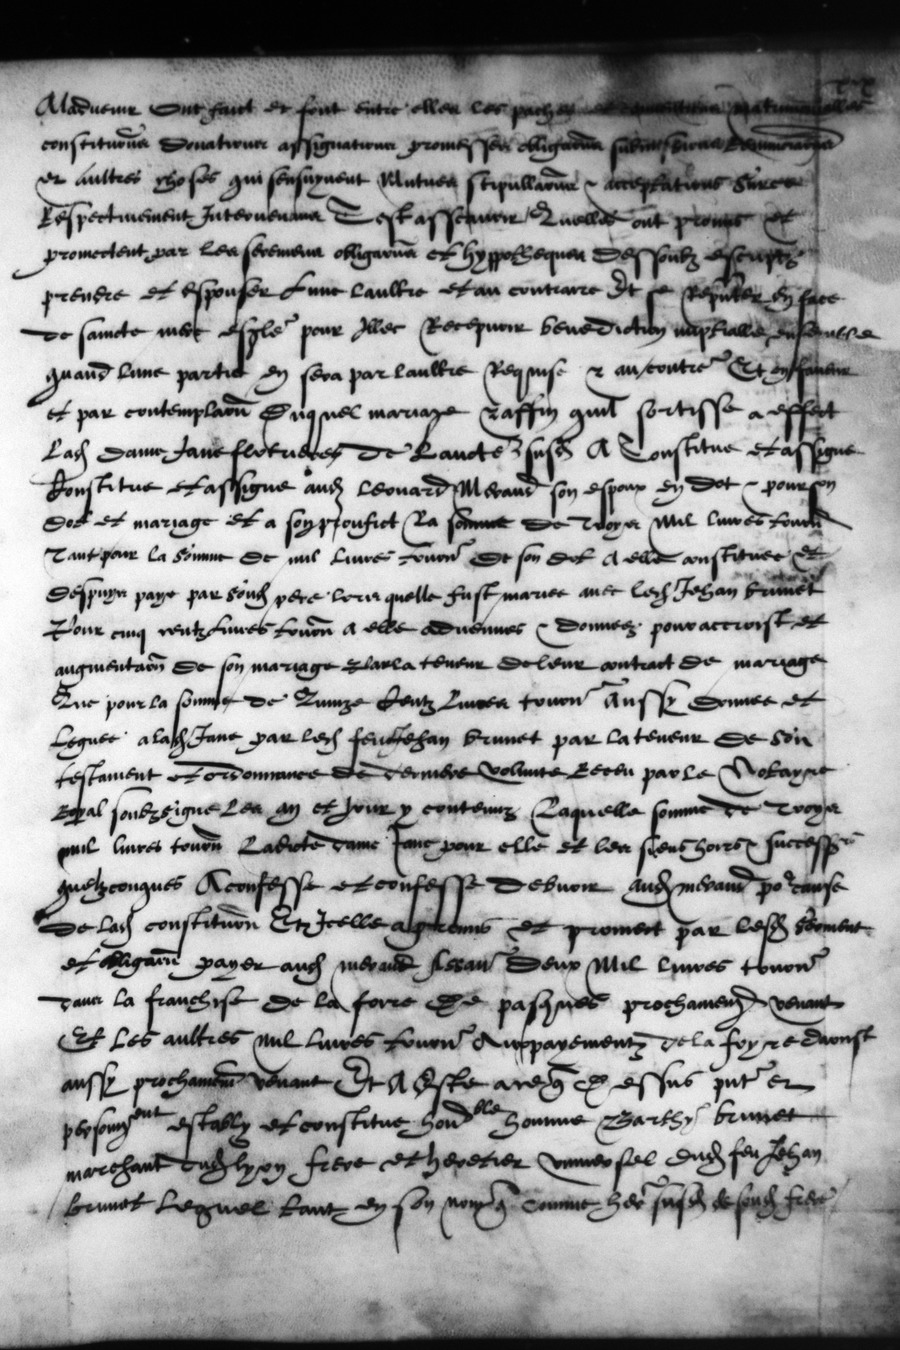 Aladvenir ont faict et font entre elles les paches et conventions matrimonialles
constitutions donations assignations promesses obligations
et aultres choses qui sensuyvent Mutues stipullations & acceptations sur ce
Respectivement Intervenans Cest asscavoir Quelles ont promis et
promectent par leurs seremens obligations et hypotheques dessoubz escriptz
prendre et espouser lung laultre et au contraire Et se en face
de saincte mere esglise pour Illec Recepvoir benediction nuptialle
quand lune partie en sera par laultre Requise & au contre Et en faveur
et par contemplaon Duquel mariage & affin quil sortisse a effect
Lad dame Jane de susd A Constitue et assigne
Constitue et assigne aud Leonard Meraud son espoux en dot & pour son
dot et mariage et a son prouffict La somme de Troys Mil livres tourn
Tant pour la somme de mil livres tourn de son dot A elle constituee et
despuys paye par sond pere lors quelle fust mariee avec led Jehan brunet
Pour cinq centz livres tourn a elle advenues & donnees pour accroist et
augmentaon de son mariage par la teneur de leur contract de mariage
Que pour la somme de Quinze Centz Livres tourn Aussy donnee et
Leguee a lad Jane par led feu Jehan brunet par la teneur de son
testament et ordonnance de derniere volunte Receu par le Notayre
Royal soubzsigne Les an et Jour y contenuz Laquelle somme de Troys
mil livres tourn Ladicte dame Jane pour elle et les siens hoirs & success
quelzconques A confesse et confesse debvoir aud meraud po cause
de lad constitution Et Icelle a promis et promect par lesd serment
et obligaon payer aud meraud scavoir deux Mil livres tourn
dans la franchise de la foyre de pasques prochainem venant
Et les aultres mil livres tourn Aux payementz de la foyre daoust
aussy prochainem venant Et A Este avecq dessus put en
personnement estably et constitue honorable homme Barthy brunet
marchant dud lyon frere et heretier universel dud feu Jehan
brunet Lequel tant en son nom q comme her susd de sond frere